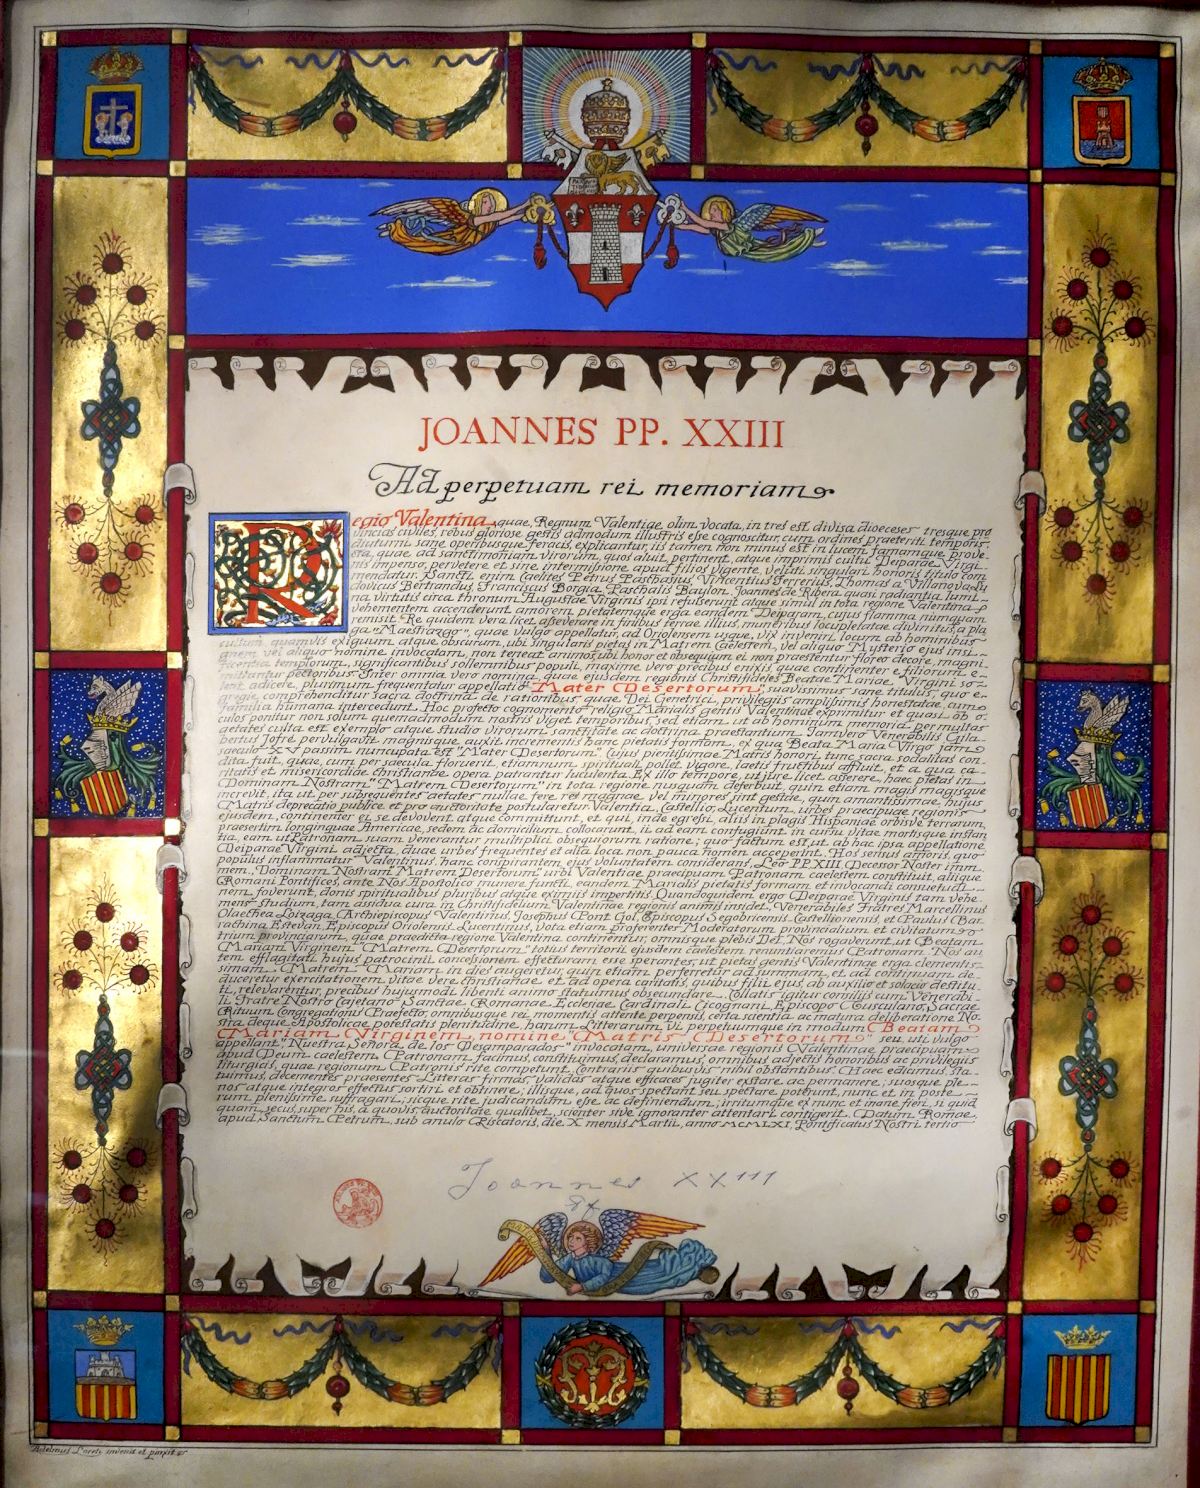 JOANNES PP. XXIII
Ad perpetuam rei memoriam
Regio Valentina quae, Regnum Valentiae olim vocata, in tres est divisa dioeceses tresque pro
vincias civiles, rebus gloriose gestis admodum illustris esse cognoscitur, cum ordines praeteriti temporis
diuturni sane operibusque feracis, explicantur, iis tamen non minus est in lucem famamque prove-
cta, quae ad sanctimoniam virorum, quos aluit, pertinent, atque imprimis cultu Deiparae Virgi-
nis impenso, pervetere et sine intermissione apud filios vigente, veluti singulari honoris titulo com
mendatur. Sancti enim Caelites Petrus Paschasius Vincentius Ferrerius, Thomas a Villanova, Lu
dovicus Bertrandus, Franciscus Borgia Paschalis Baylon, Joannes de Ribera quasi radiantia lumi-
na virtutis circa thronum Augustae Virginis ipsi refulserunt atque simul in tota regione Valentina
vehementem accenderunt amorem pietatemque erga eandem Deiparam, cuius flamma numquam
remisit. Re quidem vera licet asseverare in finibus terrae illius, muneribus locupletatae divinitus, a pla
ga "Maestrazgo", quae vulgo appellatur, ad Oriolensem usque, vix inveniri locum ab hominum
cultum quamvis exiguum atque obscurum, ubi singularis pietas in Matrem Caelestem, vel aliquo Mysterio ejus insi-
gnem vel aliquo nomine invocatam, non teneat animos, ubi honor et obsequium ei non praestentur floreo decore, magni-
ficentia templorum, significantibus sollemnibus populi, maxime vero precibus enixis quae continenter e filiorum e-
mittantur pectoribus. Inter omnia vero nomina, quae ejusdem regionis Christifideles Beatae Mariae Virgini so-
lent adicere, plurimum frequentatur appellatio "Mater Desertorum", suavissimus sane titulus, quo e-
tiam comprehenditur sacra doctrina de rationibus, quae Dei Genetrici, privilegiis amplissimis honestatae, cum
familia humana intercedunt. Hoc profecto cognomento religio Marialis gentis Valentinae exprimitur et quasi ob o-
culos ponitur non solum quemadmodum nostris viget temporibus, sed etiam ut ab hominum memoria per multas
aetates culta est exemplo atque studio virorum sanctitate ac doctrina praestantium. Jamvero Venerabilis Gila-
bertus Jofré pervulgavit magnisque auxit incrementis hanc pietatis formam, ex qua Beata Maria Virgo jam
saeculo XV passim nuncupata est "Mater Desertorum". Cuius pientissimae Matris honori tunc sacra sodalitas con-
dita fuit, quae, cum per saecula floruerit, etiamnum spirituali pollet vigore, laetis fructibus affluit, et a qua ca-
ritatis et misericordiae christianae opera patrantur luculenta. Ex illo tempore, ut jure licet asserere, haec pietas in
"Dominam Nostram "Matrem Desertorum" in tota regione nusquam deferbuit, quin etiam magis magisque
increvit, ita ut per subsequentes aetates nullae fere res magnae vel minores sint gestae, quin amantissimae, hujus
Matris deprecatio publice et pro auctoritate postularetur. Valentia, Castellio, Lucentum, urbes praecipuae regionis
ejusdem, continenter ei se devovent atque committunt, et qui, inde egressi, aliis in plagis Hispaniae orbisve terrarum,
praesertim longinquae Americae, sedem ac domicilium collocarunt, ii ad eam confugiunt in cursu vitae mortisque instan-
tia, eam ut Patronam suam venerantur multiplici obsequiorum ratione; quo factum est, ut, ab hac ipsa appellatione
Deiparae Virgini adjecta, duae urbes frequentes et alia loca non pauca nomen acceperint. Hos sensus amoris, quo
populus inflammatur Valentinus, hanc conspirantem ejus voluntatem considerans, Leo PP. XIII Decessor Noster imm.
mem., "Dominam Nostram Matrem Desertorum" urbi Valentiae praecipuam Patronam caelestem constituit, aliique
Romani Pontifices, ante Nos Apostolico munere functi, eandem Marialis pietatis formam et invocandi consuetudi-
nem foverunt, donis spiritualibus pluribus atque eximiis impertitis. Quandoquidem ergo Deiparae Virginis tam vehe-
mens studium, tam assidua cura in Christifidelium Valentinae regionis animis insidet, Venerabiles Fratres Marcellinus
Olaechea Loizaga, Archiepiscopus Valentinus, Josephus Pont Gol, Episcopus Segobricensis, Castellionensis, et Paulus Bar
rachina Estevan, Episcopus Oriolensis, Lucentinus, vota etiam proferentes Moderatorum provincialium et civitatum
trium provinciarum, quae praedicta regione Valentina continentur, omnisque plebis Dei, Nos rogaverunt, ut Beatam
Mariam Virginem, "Matrem Desertorum" totius territorii ejusdem caelestem renuntiaremus Patronam. Nos au
tem efflagitati hujus patrocinii concessionem effecturam esse sperantes, ut pietas gentis Valentinae erga clementis-
simam Matrem Mariam in dies augeretur, quin etiam perferretur ad summam, et ad continuam de-
duceretur exercitationem vitae vere christianae, et ad opera caritatis, quibus filii ejus, ab auxilio et solacio destitu-
ti, relevarentur, precibus hujusmodi libenti animo statuimus obsecundare. Collatis igitur consiliis cum Venerabi-
li Fratre Nostro Cajetano Sanctae Romanae Ecclesiae Cardinali Cicognani, Episcopo Tusculano, Sacrae
Rituum Congregationis Praefecto, omnibusque rei momentis attente perpensis, certa scientia ac matura deliberatione No-
stra deque Apostolicae potestatis plenitudine, harum Litterarum vi perpetuumque in modum Beatam
Mariam Virginem, nomine "Matris Desertorum" seu, uti vulgo
appellant "Nuestra Señora de los Desamparados" invocatam, universae regionis Valentinae praecipuam
apud Deum caelestem Patronam facimus, constituimus, declaramus, omnibus adjectis honoribus ac privilegiis
liturgicis, quae regionum Patronis rite competunt. Contrariis quibusvis nihil obstantibus. Haec edicimus, sta-
tuimus, decernentes praesentes Litteras firmas, validas atque efficaces jugiter exstare ac permanere; suosque ple-
nos atque integros effectus sortiri et obtinere; illisque, ad quos spectant seu spectare poterunt, nunc et in poste
rum plenissime suffragari; sicque rite judicandum esse ac definiendum; irritumque ex nunc et inane fieri, si quid-
quam secus, super his, a quovis, auctoritate qualibet, scienter sive ignoranter attentari contigerit. Datum Romae,
apud Sanctum Petrum, sub anulo Piscatoris, die X mensis Martii, anno MCMLXI, Pontificatus Nostri tertio
Joannes XXIII
PP
invenit et pinxit